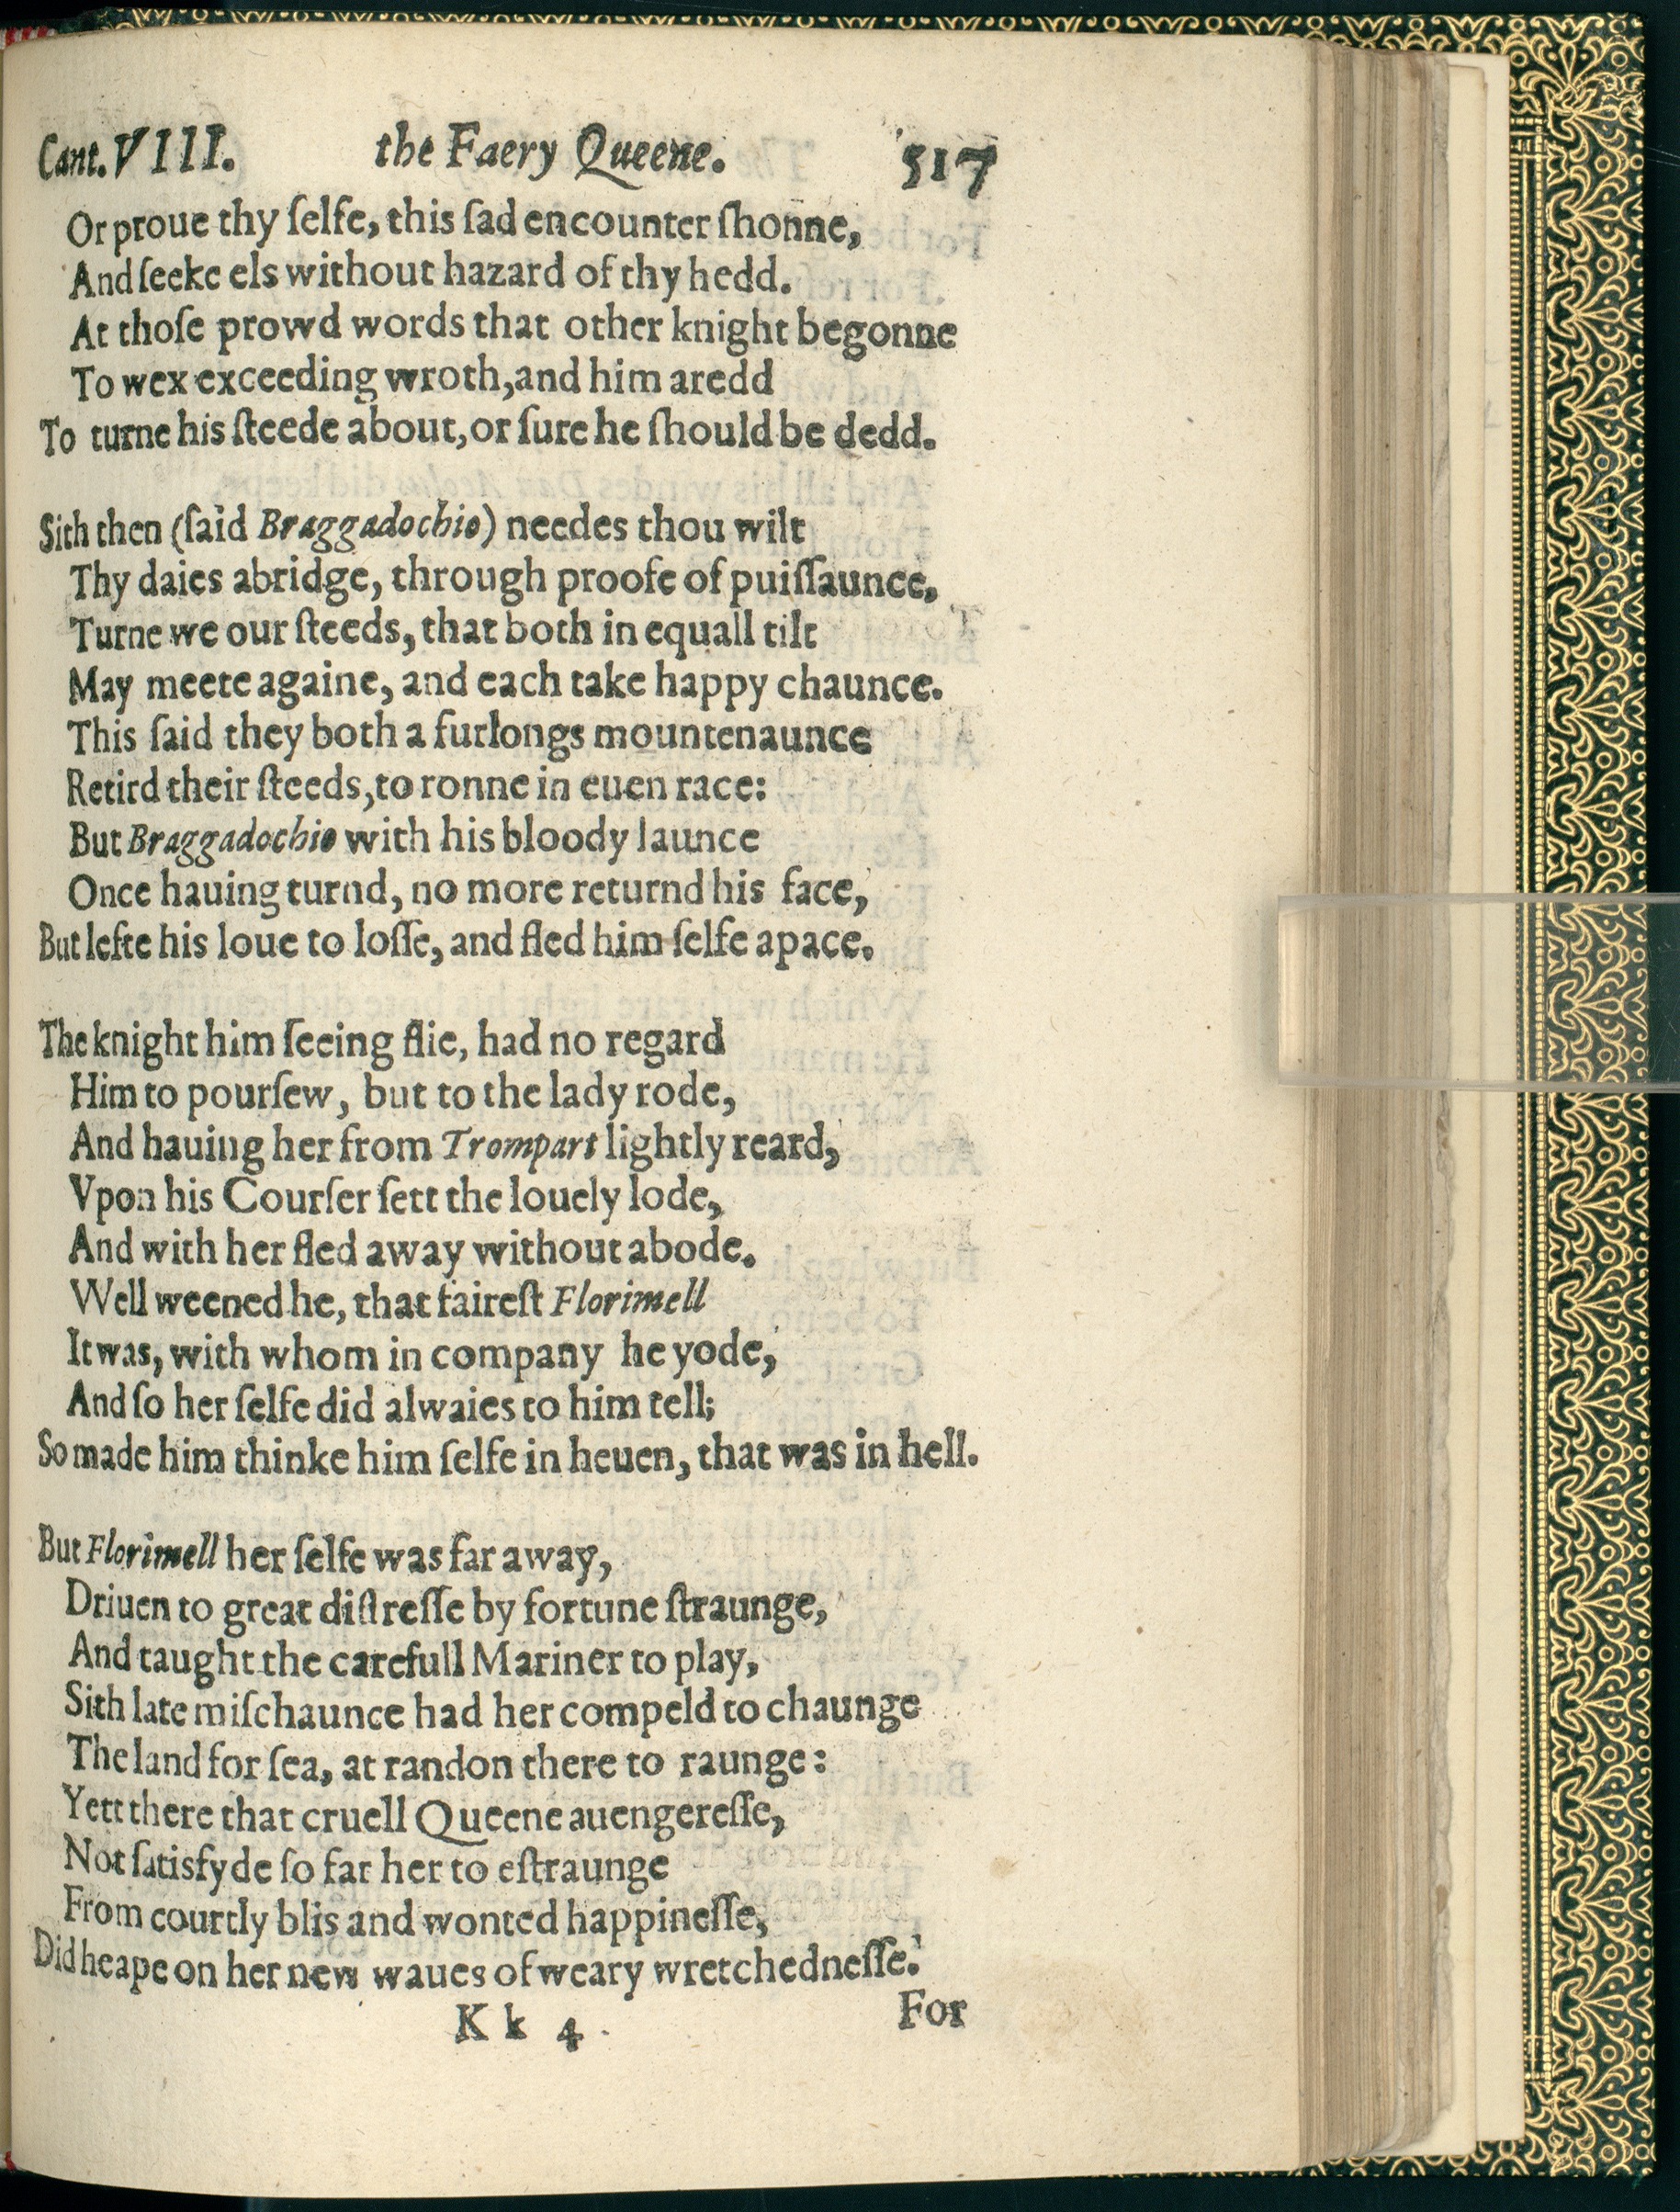 Cant. VIII. the Faery Queene. 517
Or proue thy ſelfe, this ſad encounter ſhonne,
And ſeeke els without hazard of thy hedd.
At thoſe prowd words that other knight begonne
To wex exceeding wroth, and him aredd
To turne his ſteede about, or ſure he ſhould be dedd.
Sith then (ſaid Braggadochio) needes thou wilt
Thy daies abridge, through proofe of puiſſaunce,
Turne we our ſteeds, that both in equall tilt
May meete againe, and each take happy chaunce.
This ſaid they both a furlongs mountenaunce
Retird their ſteeds, to ronne in euen race:
But Braggadochio with his bloody launce
Once hauing turnd, no more returnd his face,
But lefte his loue to loſſe, and fled him ſelfe apace.
The knight him ſeeing flie, had no regard
Him to pourſew, but to the lady rode,
And hauing her from Trompart lightly reard,
Vpon his Courſer ſett the louely lode,
And with her fled away without abode.
Well weened he, that faireſt Florimell
It was, with whom in company he yode,
And ſo her ſelfe did alwaies to him tell;
So made him thinke him ſelfe in heuen, that was in hell.
But Florimell her ſelfe was far away,
Driuen to great diſtreſſe by fortune ſtraunge,
And taught the carefull Mariner to play,
Sith late miſchaunce had her compeld to chaunge
The land for ſea, at randon there to raunge:
Yett there that cruell Queene auengereſſe,
Not ſatisfyde ſo far her to eſtraunge
From courtly blis and wonted happineſſe,
Did heape on her new waues of weary wretchedneſſe.
K k 4 For